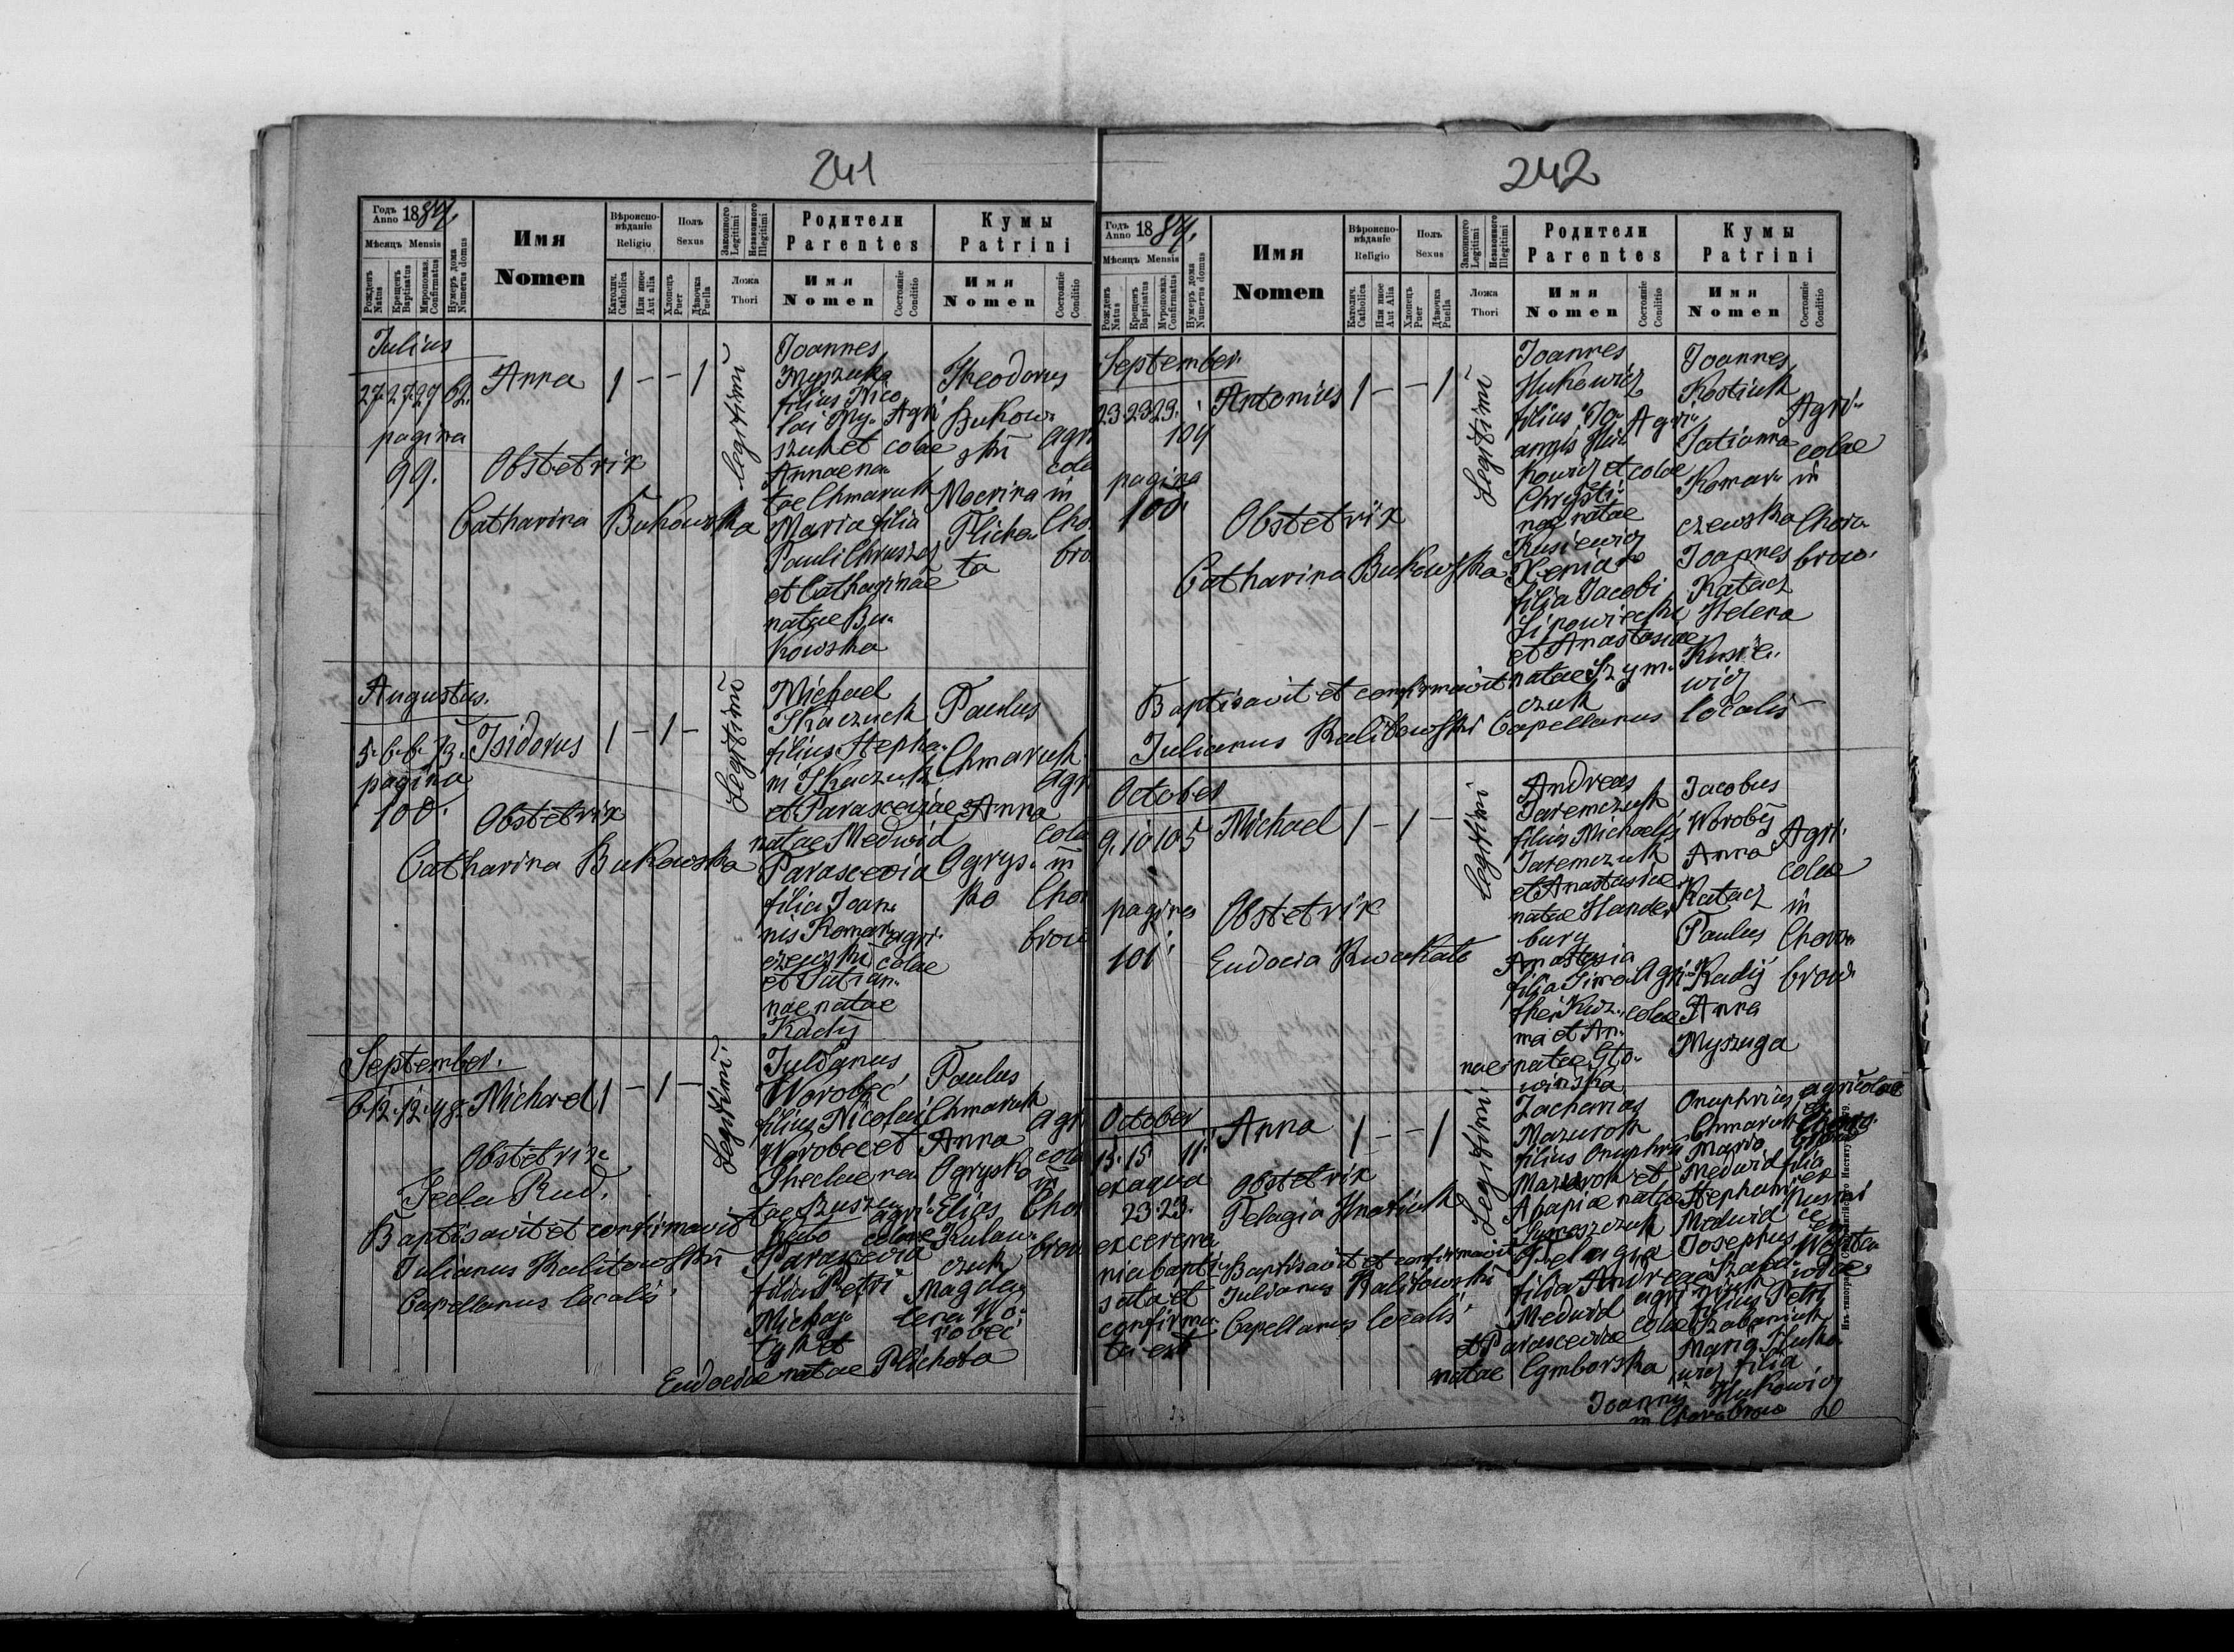 241
Годъ Anno 1884.
Мѣсяцъ Mensis
Рожденъ Natus
Крещенъ Baptisatus
Мѵропомаз. Confirmatus
Нумеръ дома Numerus domus
Имя
Nomen
Вѣроиспо-
вѣданіе
Religio
Католич. Catholica
Или иное Aut alia
Полъ
Sexus
Хлопецъ Puer
Дѣвочка Puella
Законного Legitimi
Незаконного Illegitimi
Ложа
Thori
Родители
Parentes
Имя
Nomen
Состояніе Conditio
Кумы
Patrini
Имя
Nomen
Состояніе Conditio
Julius
27 27 27
pagina
99.
Anna
1 - - 1
legitimi
Obstetrix
Catharina Bukowska
Joannes
Myszuka
filius Nico
lai My- Agri
szuk et colae
Annae na-
tae Chmaruk
Maria filia
Pauli Chruszcz
et Catharinae
natae Bu-
kowska
Theodorus
Bukow-
ski
Macrina
Plicho-
ta
agri
cola
in
Cho
bro
Augustus.
5. 6. 6. 73.
pagina
100.
Isidorus
1 - 1 -
Legitimi
Obstetrix
Catharina Bukowska
Michael
Tkaczuck
filius Stepha-
ni Tkaczuk
et Parasceviae
natae Medwid
Parascevia
filia Joan-
nis Komar-
czewski
et Tatian-
nae natae
Kadij
agri-
colae
Paulus
Chmaruk
Anna
Ogrys-
ko
agr
cola
in
Chor
brow
September.
6. 12. 12. 48.
Michael
1 - 1 -
Legitimi.
Obstetrix
Tecla Rud.
Baptisavit et confirmavit
Julianus Kalitowski
Capellanus localis.
Julianus
Worobeć
filius Nicolai
Worobec et
Theclae na
Parascevia
filia Petri
Michay-
Eudociae natae Plichota
Paulus
Chmaruk
Anna
Ogrysko
Elias
Kulaw-
czuk
Magda-
lena Wo-
robeć
agr
cola
in
Chor
brow
242
Годъ Anno 1884.
Мѣсяцъ Mensis
Рожденъ Natus
Крещенъ Baptisatus
Мѵропомаз. Confirmatus
Нумеръ дома Numerus domus
Имя
Nomen
Вѣроиспо-
вѣданіе
Religio
Католич. Catholica
Или иное Aut Alia
Полъ
Sexus
Хлопецъ Puer
Дѣвочка Puella
Законного Legitimi
Незаконного Illegitimi
Ложа
Thori
Родители
Parentes
Имя
Nomen
Состояніе Conditio
Кумы
Patrini
Имя
Nomen
Состояніе Conditio
September.
23 23 23.
104
pagina
100.
Antonius
1 - - 1
Legitimi
Obstetrix
Catharina Bukowska
Joannes
Hukowicz
filius Jo- Agri-
annis Hu-
kowicz et colae
Chrysti-
nae natae
Kusiewicz
Xenia
filia Jacobi
Lipowiecki
et Anastasiae
natae Szym-
czuk
Joannes
Kostiuk
Tatianna
Komar-
czewska
Joannes
Katacz
Helena
Kusie-
wicz
Agri-
colae
in
Choro-
brow.
Baptisavit et confirmavit
Julianus Kalitowski Capellanus localis
October
9. 10 10 5
pagina
101
Michael
1 - 1 -
legitimi
Obstetrix
Eudocia
Andreas
Jaremczuk
filius Michaelis
Jaremczuk
et Anastasiae
natae Hander
bury
Anastasia
filia Timo- Agri-
thei Kuz- colae
ma et An-
nae natae Gto-
winska
Jacobus
Worobij
Anna
Katacz
Paulus
Kadij
Anna
Myszuga
Agri-
colae
in
Choro-
brow.
October
15. 15 11.
ex aqua
23 23.
ex cerema
nia bapti-
sata et
confirma-
ta est
Anna
1 - - 1
Legitimi
Obstetrix
Pelagia Hnatiuk
Baptisavit et confirmavit
Julianus Kalitowski
Capellanus localis
Zacharias
Mazurok
filius Onuphrii
Mazurok et
Ahapiae natae
Pelagia
filia Andreae
Medwid agri
et Parasceviae colae
natae Cymborska
Onuphrius
Chmaruk
Maria
Medwid filia
Stephani
Medwid
Josephus
filius Petri
Maria Huko-
wicz filia
Joannis Hukowicz
in Chorobrow
agricolae